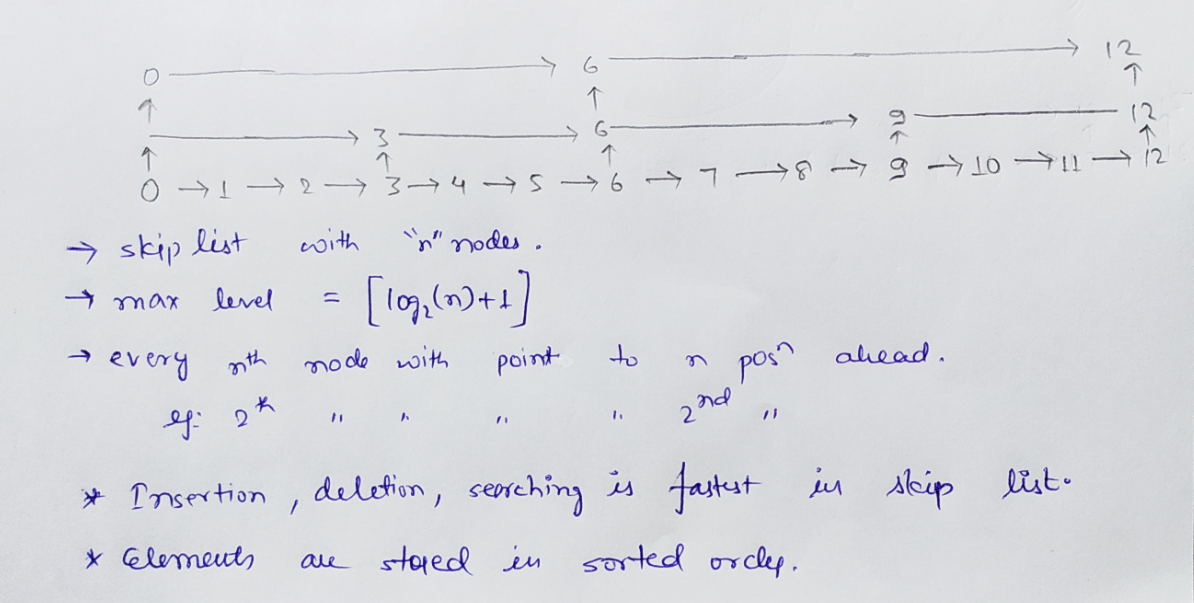 0 → 6 → 12
↑ ↑ ↑
→ 3 → 6 → 9 — 12
↑ ↑ ↑ ↑ ↑
0 → 1 → 2 → 3 → 4 → 5 → 6 → 7 → 8 → 9 → 10 → 11 → 12
→ skip list with "n" nodes.
→ max level = [log₂(n)+1]
→ every nth node with point to n posⁿ ahead.
eg: 2th " " " " 2nd "
* Insertion, deletion, searching is fastest in skip list.
* Elements are stored in sorted order.